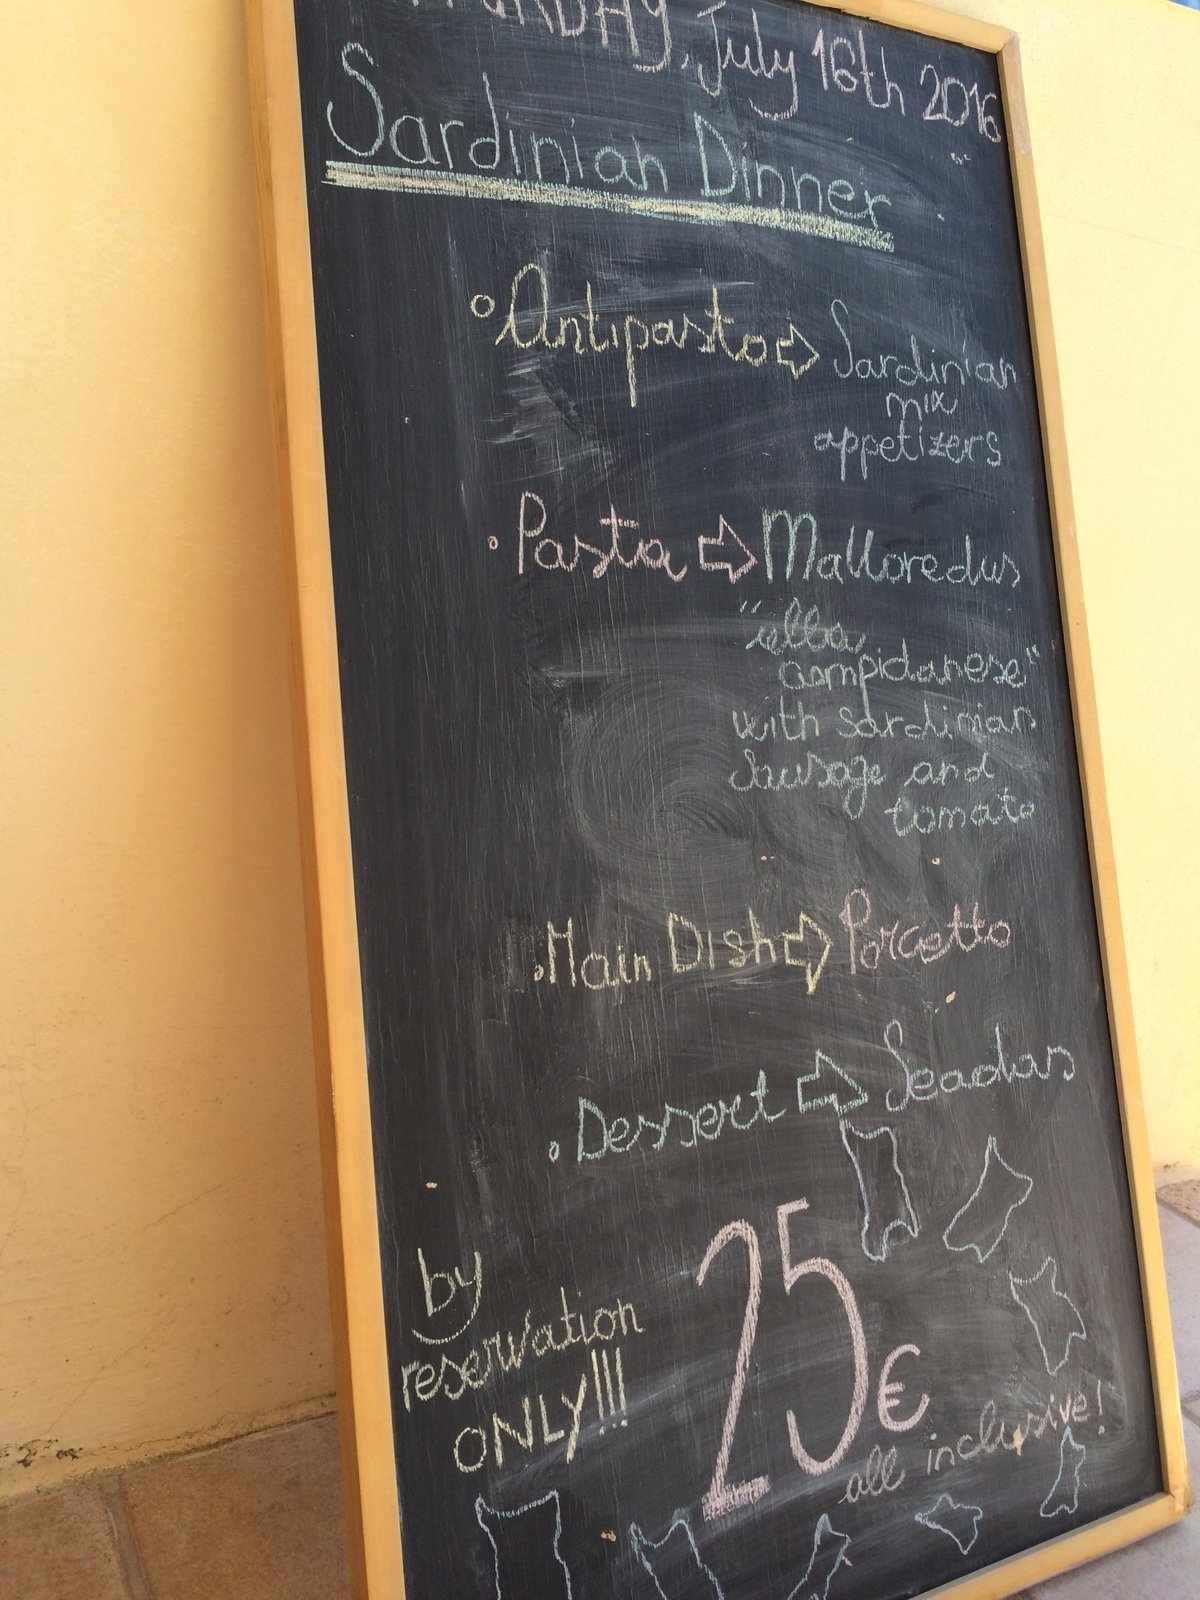 July 16th 2016
Sardinian Dinner
Antipasto ⇨ Sardinian
mix
appetizers
Pasta ⇨ Malloredus
"alla
campidanese"
with sardinian
sausage and
tomato
Main Dish ⇨ Porcetto
Dessert ⇨ Seadas
by
reservation
ONLY!!!
25€
all inclusive!